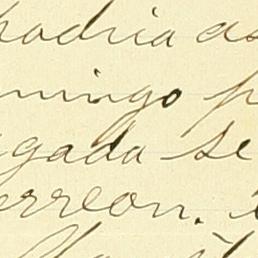 podria as
mingo p
gada se
erreon.